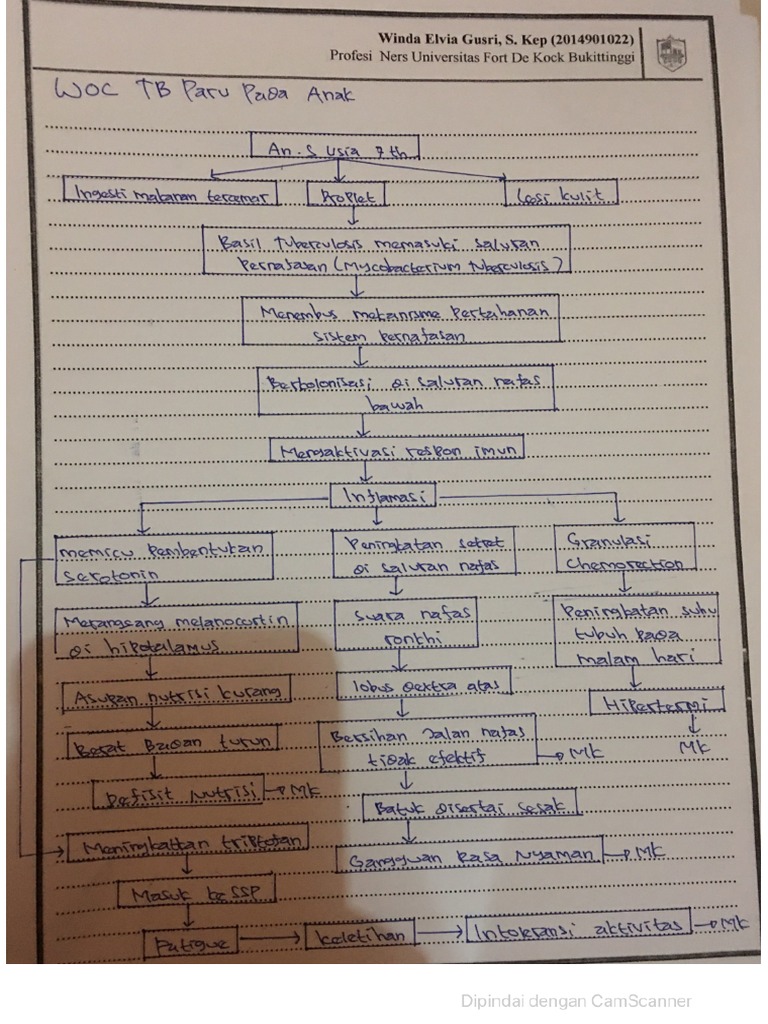 Winda Elvia Gusri, S. Kep (2014901022)
Profesi Ners Universitas Fort De Kock Bukittinggi
WOC TB Paru Pada Anak
An. S Usia 7 th
Ingesti makanan tercemar
Droplet
Lesi kulit
Basil Tuberculosis memasuki saluran
Pernafasan (Mycobacterium tuberculosis)
Menembus mekanisme Pertahanan
sistem pernafasan
Berkolonisasi di saluran nafas
bawah
Mengaktivasi respon imun
Inflamasi
memicu pembentukan
serotonin
Peningkatan sekret
di saluran nafas
Granulasi
Chemorection
Merangsang melanocortin
di hipotalamus
Suara nafas
ronkhi
Peningkatan suhu
tubuh pada
malam hari
Asupan nutrisi kurang
lobus dextra atas
Hipertermi
MK
Berat Badan turun
Bersihan Jalan nafas
tidak efektif
MK
Defisit Nutrisi
MK
Batuk disertai sesak
Meningkatkan triptofan
Gangguan Rasa Nyaman
MK
Masuk ke SSP
Fatigue
keletihan
Intoleransi aktivitas
MK
Dipindai dengan CamScanner